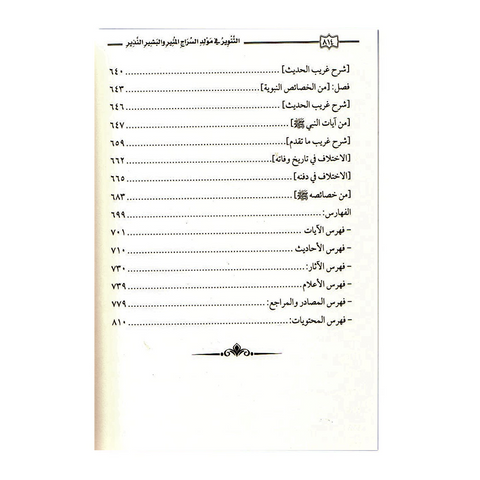 ٨١٤ التنوير في مولد السراج المنير والبشير النذير
[شرح غريب الحديث] ٦٤٠
فصل: [من الخصائص النبوية] ٦٤٣
[شرح غريب الحديث] ٦٤٦
[من آيات النبي ﷺ] ٦٤٧
[شرح غريب ما تقدم] ٦٥٩
[الاختلاف في تاريخ وفاته] ٦٦٢
[الاختلاف في دفنه] ٦٦٥
[من خصائصه ﷺ] ٦٨٣
الفهارس: ٦٩٩
- فهرس الآيات ٧٠١
- فهرس الأحاديث ٧١٠
- فهرس الآثار: ٧٣٠
- فهرس الأعلام ٧٣٩
- فهرس المصادر والمراجع: ٧٧٩
- فهرس المحتويات: ٨١٠